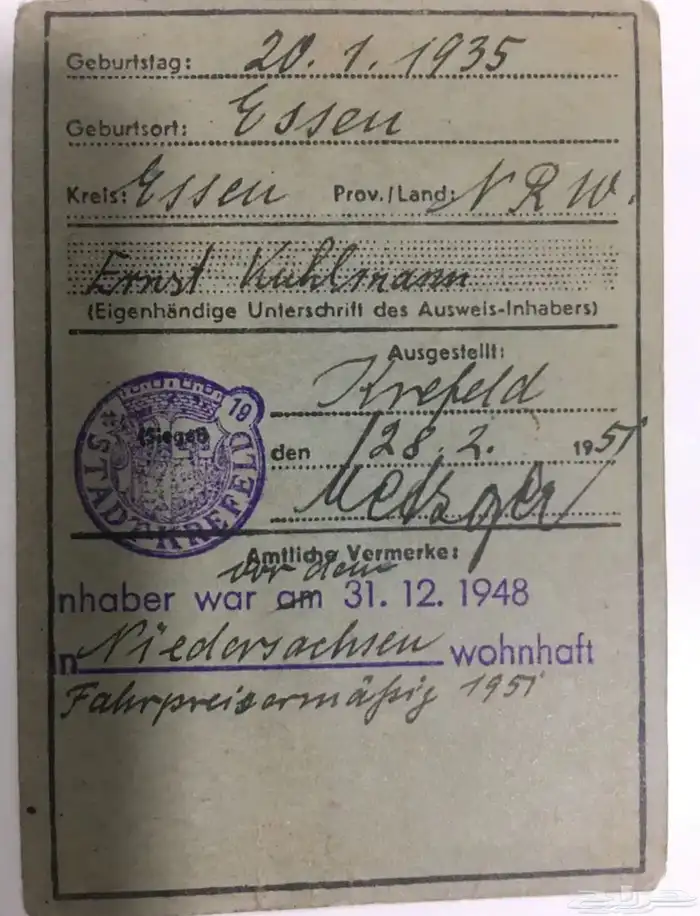 Geburtstag: 20. 1. 1935
Geburtsort: Essen
Kreis: Essen Prov./Land: NRW.
Ernst Kuhlmann
(Eigenhändige Unterschrift des Ausweis-Inhabers)
Ausgestellt:
Krefeld
den 28. 2. 1951
(Siegel)
19
STADT KREFELD
Amtliche Vermerke:
vor dem
nhaber war am 31. 12. 1948
n Niedersachsen wohnhaft
Fahrpreisermäßig 1951
حراج